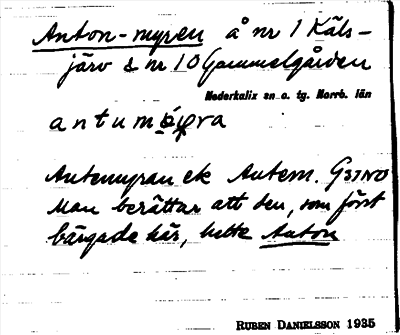 Anton-myren å nr 1 Käls-
järv & nr 10 Gammelgården
Nederkalix sn o. tg. Norrb. län
antum
Antemyran ek Antem. G37NO
Man berättar att den, som först
bärgade här, hette Anton
RUBEN DANIELSSON 1935